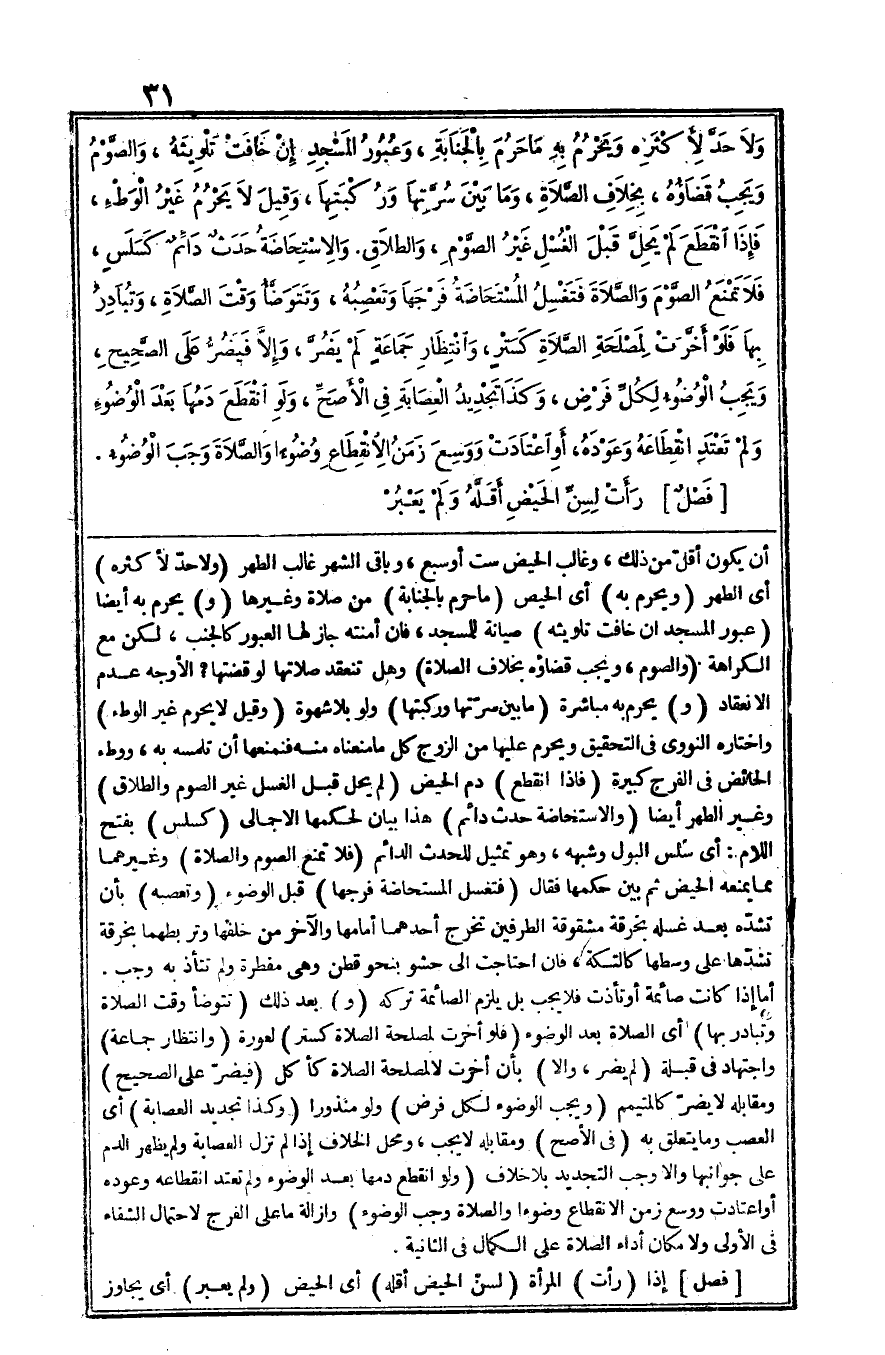 ٣١
وَلَا حَدَّ لِأَكْثَرِهِ وَيَحْرُمُ بِهِ مَاحَرُمَ بِالْجَنَابَةِ ، وَعُبُورُ المَسْجِدِ إِنْ خَافَتْ تَلْوِيثَهُ ، وَالصَّوْمُ
وَيَجِبُ قَضَاؤُهُ ، بِخِلَافِ الصَّلَاةِ ، وَمَا بَيْنَ سُرَّتِهَا وَرُكْبَتِهَا ، وَقِيلَ لَا يَحْرُمُ غَيْرُ الْوَطْءِ ،
فَإِذَا انْقَطَعَ لَمْ يَحِلَّ قَبْلَ الْغُسْلِ غَيْرُ الصَّوْمِ ، وَالطلَاقِ. وَالِاسْتِحَاضَةُ حَدَثٌ دَائِمٌ كَسَلَسٍ ،
فَلَا تَمْنَعُ الصَّوْمَ وَالصَّلَاةَ فَتَغْسِلُ الْمُسْتَحَاضَةُ فَرْجَهَا وَتَعْصِبُهُ ، وَتَتَوَضَّأُ وَقْتَ الصَّلَاةِ ، وَتُبَادِرُ
بِهَا فَلَوْ أَخَّرَتْ لِمَصْلَحَةِ الصَّلَاةِ كَسَتْرٍ ، وَانْتِظَارِ جَمَاعَةٍ لَمْ يَضُرَّ ، وَإِلَّا فَيَضُرُّ عَلَى الصَّحِيحِ ،
وَيَجِبُ الْوُضُوءُ لِكُلِّ فَرْضٍ ، وَكَذَا تَجْدِيدُ الْعِصَابَةِ فِى الْأَصَحِّ ، وَلَوِ انْقَطَعَ دَمُهَا بَعْدَ الْوُضُوءِ
وَلَمْ تَعْتَدِ انْقِطَاعَهُ وَعَوْدَهُ، أَوِ اعْتَادَتْ وَوَسِعَ زَمَنُ الِانْقِطَاعِ وُضُوءًا وَالصَّلَاةَ وَجَبَ الْوُضُوءُ .
[ فَصْلٌ ] رَأَتْ لِسِنِّ الحَيْضِ أَقَلَّهُ وَلَمْ يَعْبُرْ
أن يكون أقلّ من ذلك ، وغالب الحيض ست أوسبع ، وباقى الشهر غالب الطهر (ولاحدّ لأكثره )
أى الطهر ( ويحرم به ) أى الحيض ( ماحرم بالجنابة ) من صلاة وغيرها ( و ) يحرم به أيضا
( عبور المسجد ان خافت تلويثه ) صيانة للمسجد ، فان أمنته جاز لها العبور كالجنب ، لكن مع
الكراهة (والصوم ، ويجب قضاؤه بخلاف الصلاة) وهل تنعقد صلاتها لو قضتها؟ الأوجه عدم
الانعقاد ( و ) يحرم به مباشرة ( مابين سرّتها وركبتها ) ولو بلاشهوة ( وقيل لايحرم غير الوطء )
واختاره النووى فى التحقيق ويحرم عليها من الزوج كل مامنعناه منه فنمنعها أن تلمسه به ، ووطء
الحائض فى الفرج كبيرة ( فاذا انقطع ) دم الحيض ( لم يحل قبل الغسل غير الصوم والطلاق )
وغير الطهر أيضا ( والاستحاضة حدث دائم ) هذا بيان لحكمها الاجمالى ( كسلس ) بفتح
اللام : أى سلس البول وشبهه ، وهو تمثيل للحدث الدائم (فلا تمنع الصوم والصلاة ) وغيرهما
مما يمنعه الحيض ثم بين حكمها فقال ( فتغسل المستحاضة فرجها ) قبل الوضوء ( وتعصبه ) بأن
تشدّه بعد غسله بخرقة مشقوقة الطرفين تخرج أحدهما أمامها والآخر من خلفها وتربطهما بخرقة
تشدّها على وسطها كالتكة ، فان احتاجت الى حشو بنحو قطن وهى مفطرة ولم تتأذ به وجب .
أما إذا كانت صائمة أو تأذت فلا يجب بل يلزم الصائمة تركه ( و ) بعد ذلك ( تتوضأ وقت الصلاة
وتبادر بها ) أى الصلاة بعد الوضوء (فلو أخرت لمصلحة الصلاة كستر ) لعورة ( وانتظار جماعة)
واجتهاد فى قبلة ( لم يضر ، والا ) بأن أخرت لا لمصلحة الصلاة كأكل (فيضرّ على الصحيح )
ومقابله لايضرّ كالمتيمم ( ويجب الوضوء لكل فرض ) ولو منذورا ( وكذا تجديد العصابة ) أى
العصب ومايتعلق به ( فى الأصح ) ومقابله لايجب ، ومحل الخلاف إذا لم تزل العصابة ولم يظهر الدم
على جوانبها والا وجب التجديد بلاخلاف ( ولو انقطع دمها بعد الوضوء ولم تعتد انقطاعه وعوده
أواعتادت ووسع زمن الانقطاع وضوءا والصلاة وجب الوضوء ) وازالة ماعلى الفرج لاحتمال الشفاء
فى الأولى ولامكان أداء الصلاة على الكمال فى الثانية .
[ فصل ] إذا ( رأت ) المرأة ( لسنّ الحيض أقله ) أى الحيض ( ولم يعبر ) أى يجاوز